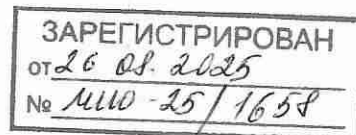 ЗАРЕГИСТРИРОВАН
от 26 08. 2025
№ МИО-25/1658